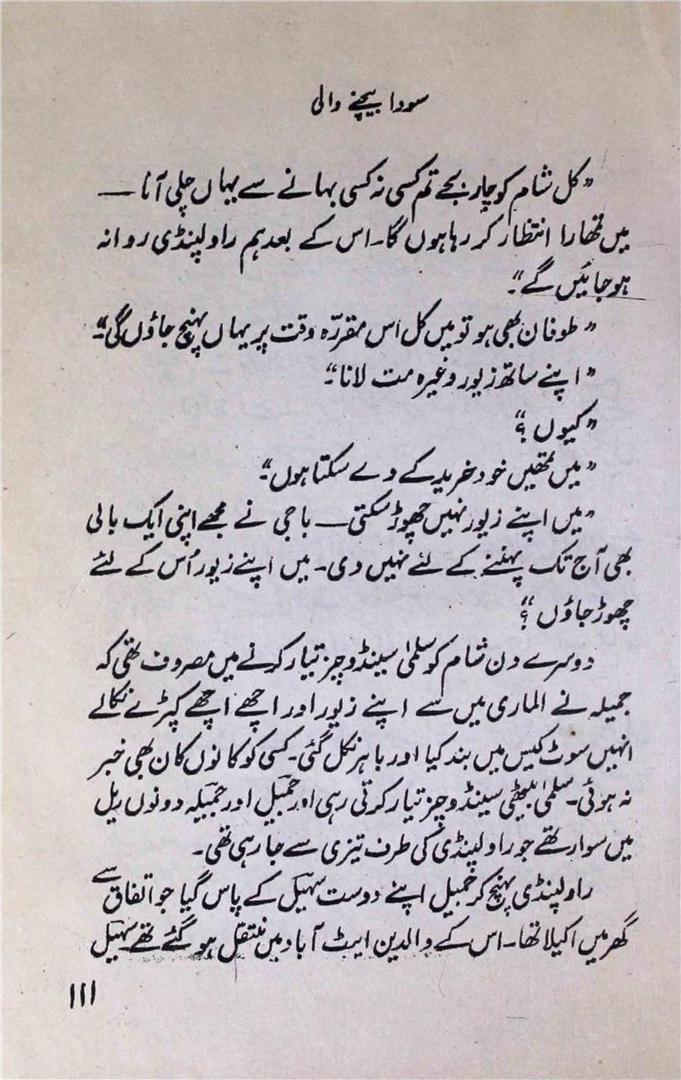 سودا بیچنے والی
”کل شام کو چار بجے تم کسی نہ کسی بہانے سے یہاں چلی آنا —
میں تمھارا انتظار کر رہا ہوں گا۔ اس کے بعد ہم راولپنڈی روانہ
ہو جائیں گے“۔
”طوفان بھی ہو تو میں کل اُس مقررّہ وقت پر یہاں پہنچ جاؤں گی“۔
”اپنے ساتھ زیور وغیرہ مت لانا“۔
”کیوں؟“
”میں تمھیں خود خرید کے دے سکتا ہوں“۔
”میں اپنے زیور نہیں چھوڑ سکتی — باجی نے مجھے اپنی ایک بالی
بھی آج تک پہننے کے لئے نہیں دی۔ میں اپنے زیور اُس کے لئے
چھوڑ جاؤں؟“
دوسرے دن شام کو سلمیٰ سینڈوچز تیار کرنے میں مصروف تھی کہ
جمیلہ نے الماری میں سے اپنے زیور اور اچھے اچھے کپڑے نکالے
انہیں سوٹ کیس میں بند کیا اور باہر نکل گئی۔ کسی کو کانوں کان بھی خبر
نہ ہوئی۔ سلمیٰ بیٹھی سینڈوچز تیار کرتی رہی اور جمیل اور جمیلہ دونوں ریل
میں سوار تھے جو راولپنڈی کی طرف تیزی سے جا رہی تھی۔
راولپنڈی پہنچ کر جمیل اپنے دوست سہیل کے پاس گیا جو اتفاق سے
گھر میں اکیلا تھا۔ اس کے والدین ایبٹ آباد میں منتقل ہو گئے تھے۔ سہیل
۱۱۱